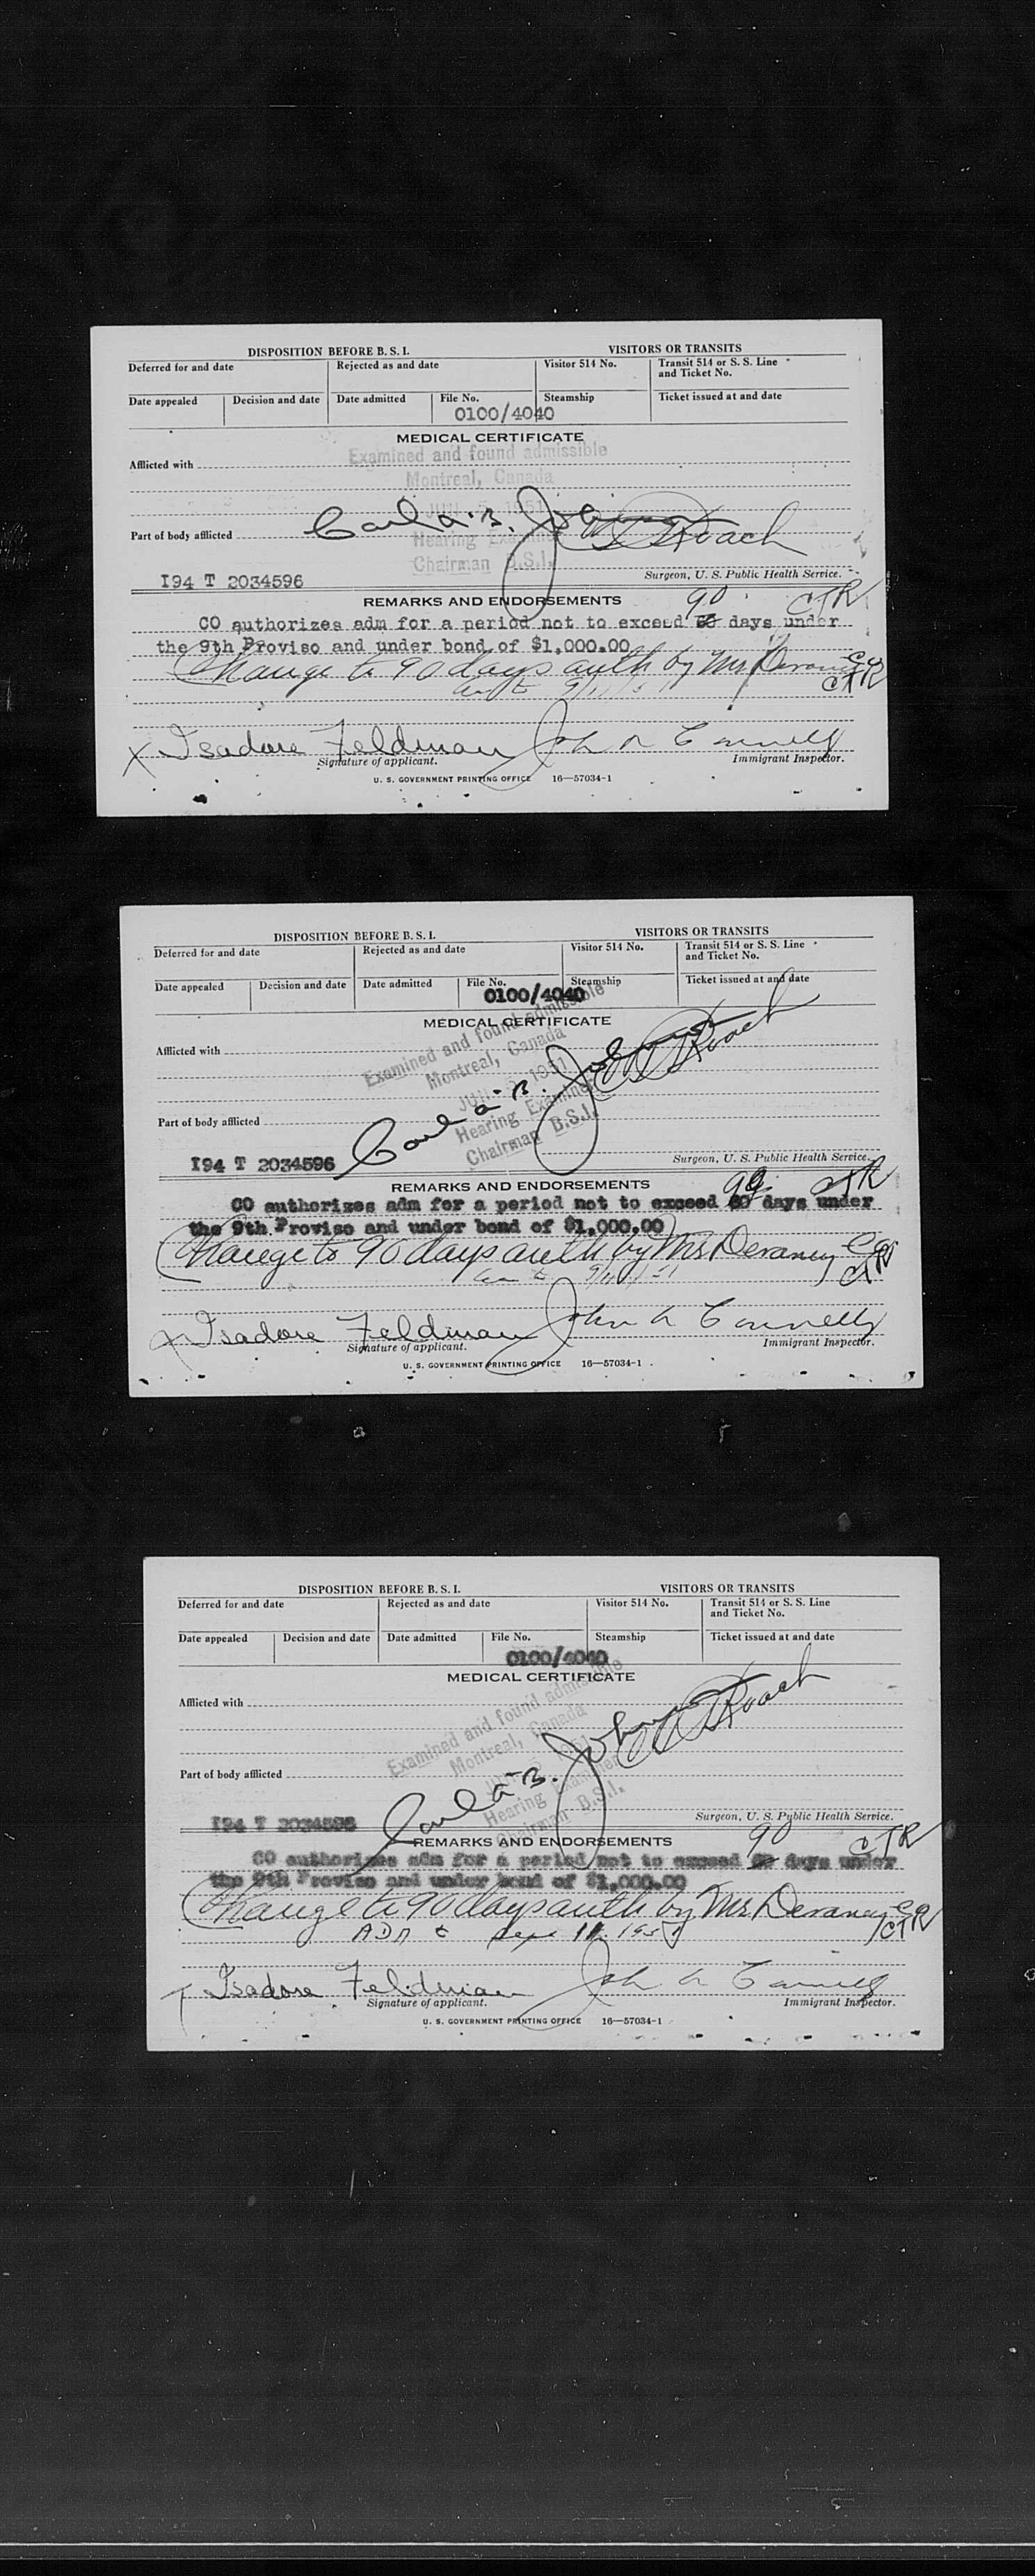 DISPOSITION BEFORE B. S. I. VISITORS OR TRANSITS
Deferred for and date Rejected as and date Visitor 514 No. Transit 514 or S. S. Line
and Ticket No.
Date appealed Decision and date Date admitted File No. Steamship Ticket issued at and date
0100/4040
MEDICAL CERTIFICATE
Examined and found admissible
Afflicted with
Montreal, Canada
Carl A. B. Johnson
Roach
Part of body afflicted
Hearing Examiner
Chairman B.S.I.
Surgeon, U. S. Public Health Service.
I94 T 2034596
REMARKS AND ENDORSEMENTS 90 CTR
CO authorizes adm for a period not to exceed 60 days under
the 9th Proviso and under bond of $1,000.00
Change to 90 days auth by Mr Devaney CO
CTR
X Isadore Feldman John Connelly
Signature of applicant. Immigrant Inspector.
U. S. GOVERNMENT PRINTING OFFICE 16—57034-1
DISPOSITION BEFORE B. S. I. VISITORS OR TRANSITS
Deferred for and date Rejected as and date Visitor 514 No. Transit 514 or S. S. Line
and Ticket No.
Date appealed Decision and date Date admitted File No. Steamship Ticket issued at and date
0100/4040
MEDICAL CERTIFICATE
Examined and found admissible
Afflicted with
Montreal, Canada
1951
Carl A. B. Johnson
Roach
Part of body afflicted
Hearing Examiner
Chairman B.S.I.
Surgeon, U. S. Public Health Service.
I94 T 2034596
REMARKS AND ENDORSEMENTS 90 CTR
CO authorizes adm for a period not to exceed 60 days under
the 9th Proviso and under bond of $1,000.00
(Change to 90 days auth by Mr Devaney CO
CTR
X Isadore Feldman John Connelly
Signature of applicant. Immigrant Inspector.
U. S. GOVERNMENT PRINTING OFFICE 16—57034-1
DISPOSITION BEFORE B. S. I. VISITORS OR TRANSITS
Deferred for and date Rejected as and date Visitor 514 No. Transit 514 or S. S. Line
and Ticket No.
Date appealed Decision and date Date admitted File No. Steamship Ticket issued at and date
0100/4040
MEDICAL CERTIFICATE
Examined and found admissible
Afflicted with
Montreal, Canada
Carl A. B. Johnson
Roach
Part of body afflicted
Hearing Examiner
Chairman B.S.I.
Surgeon, U. S. Public Health Service.
I94 T 2034596
REMARKS AND ENDORSEMENTS 90 CTR
CO authorizes adm for a period not to exceed 60 days under
the 9th Proviso and under bond of $1,000.00
(Change to 90 days auth by Mr Devaney CO
Sept 11, 1951 CTR
Isadore Feldman John Connelly
Signature of applicant. Immigrant Inspector.
U. S. GOVERNMENT PRINTING OFFICE 16—57034-1